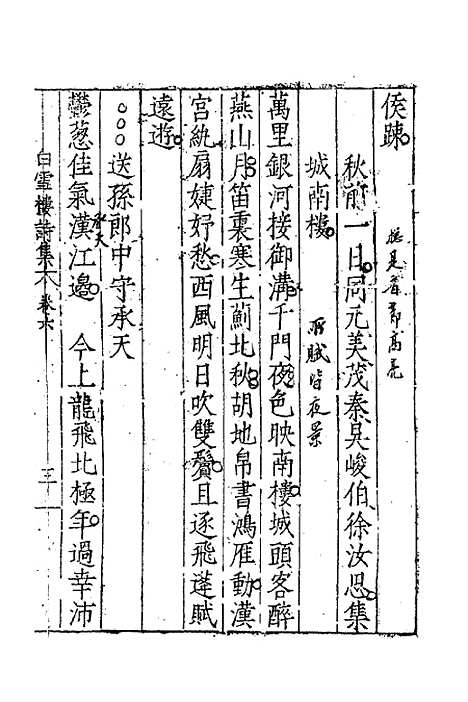 侯踈
總是音節高亮
秋前一日同元美茂秦吳峻伯徐汝思集
城南樓
所賦皆夜景
萬里銀河接御溝千門夜色映南樓城頭客醉
燕山月笛裏寒生薊北秋胡地帛書鴻雁動漢
宮紈扇婕妤愁西風明日吹雙鬢且逐飛蓬賦
遠遊
送孫郎中守承天
承天
鬱葱佳氣漢江邊 今上龍飛北極年過幸沛
白雪樓詩集 卷六
三